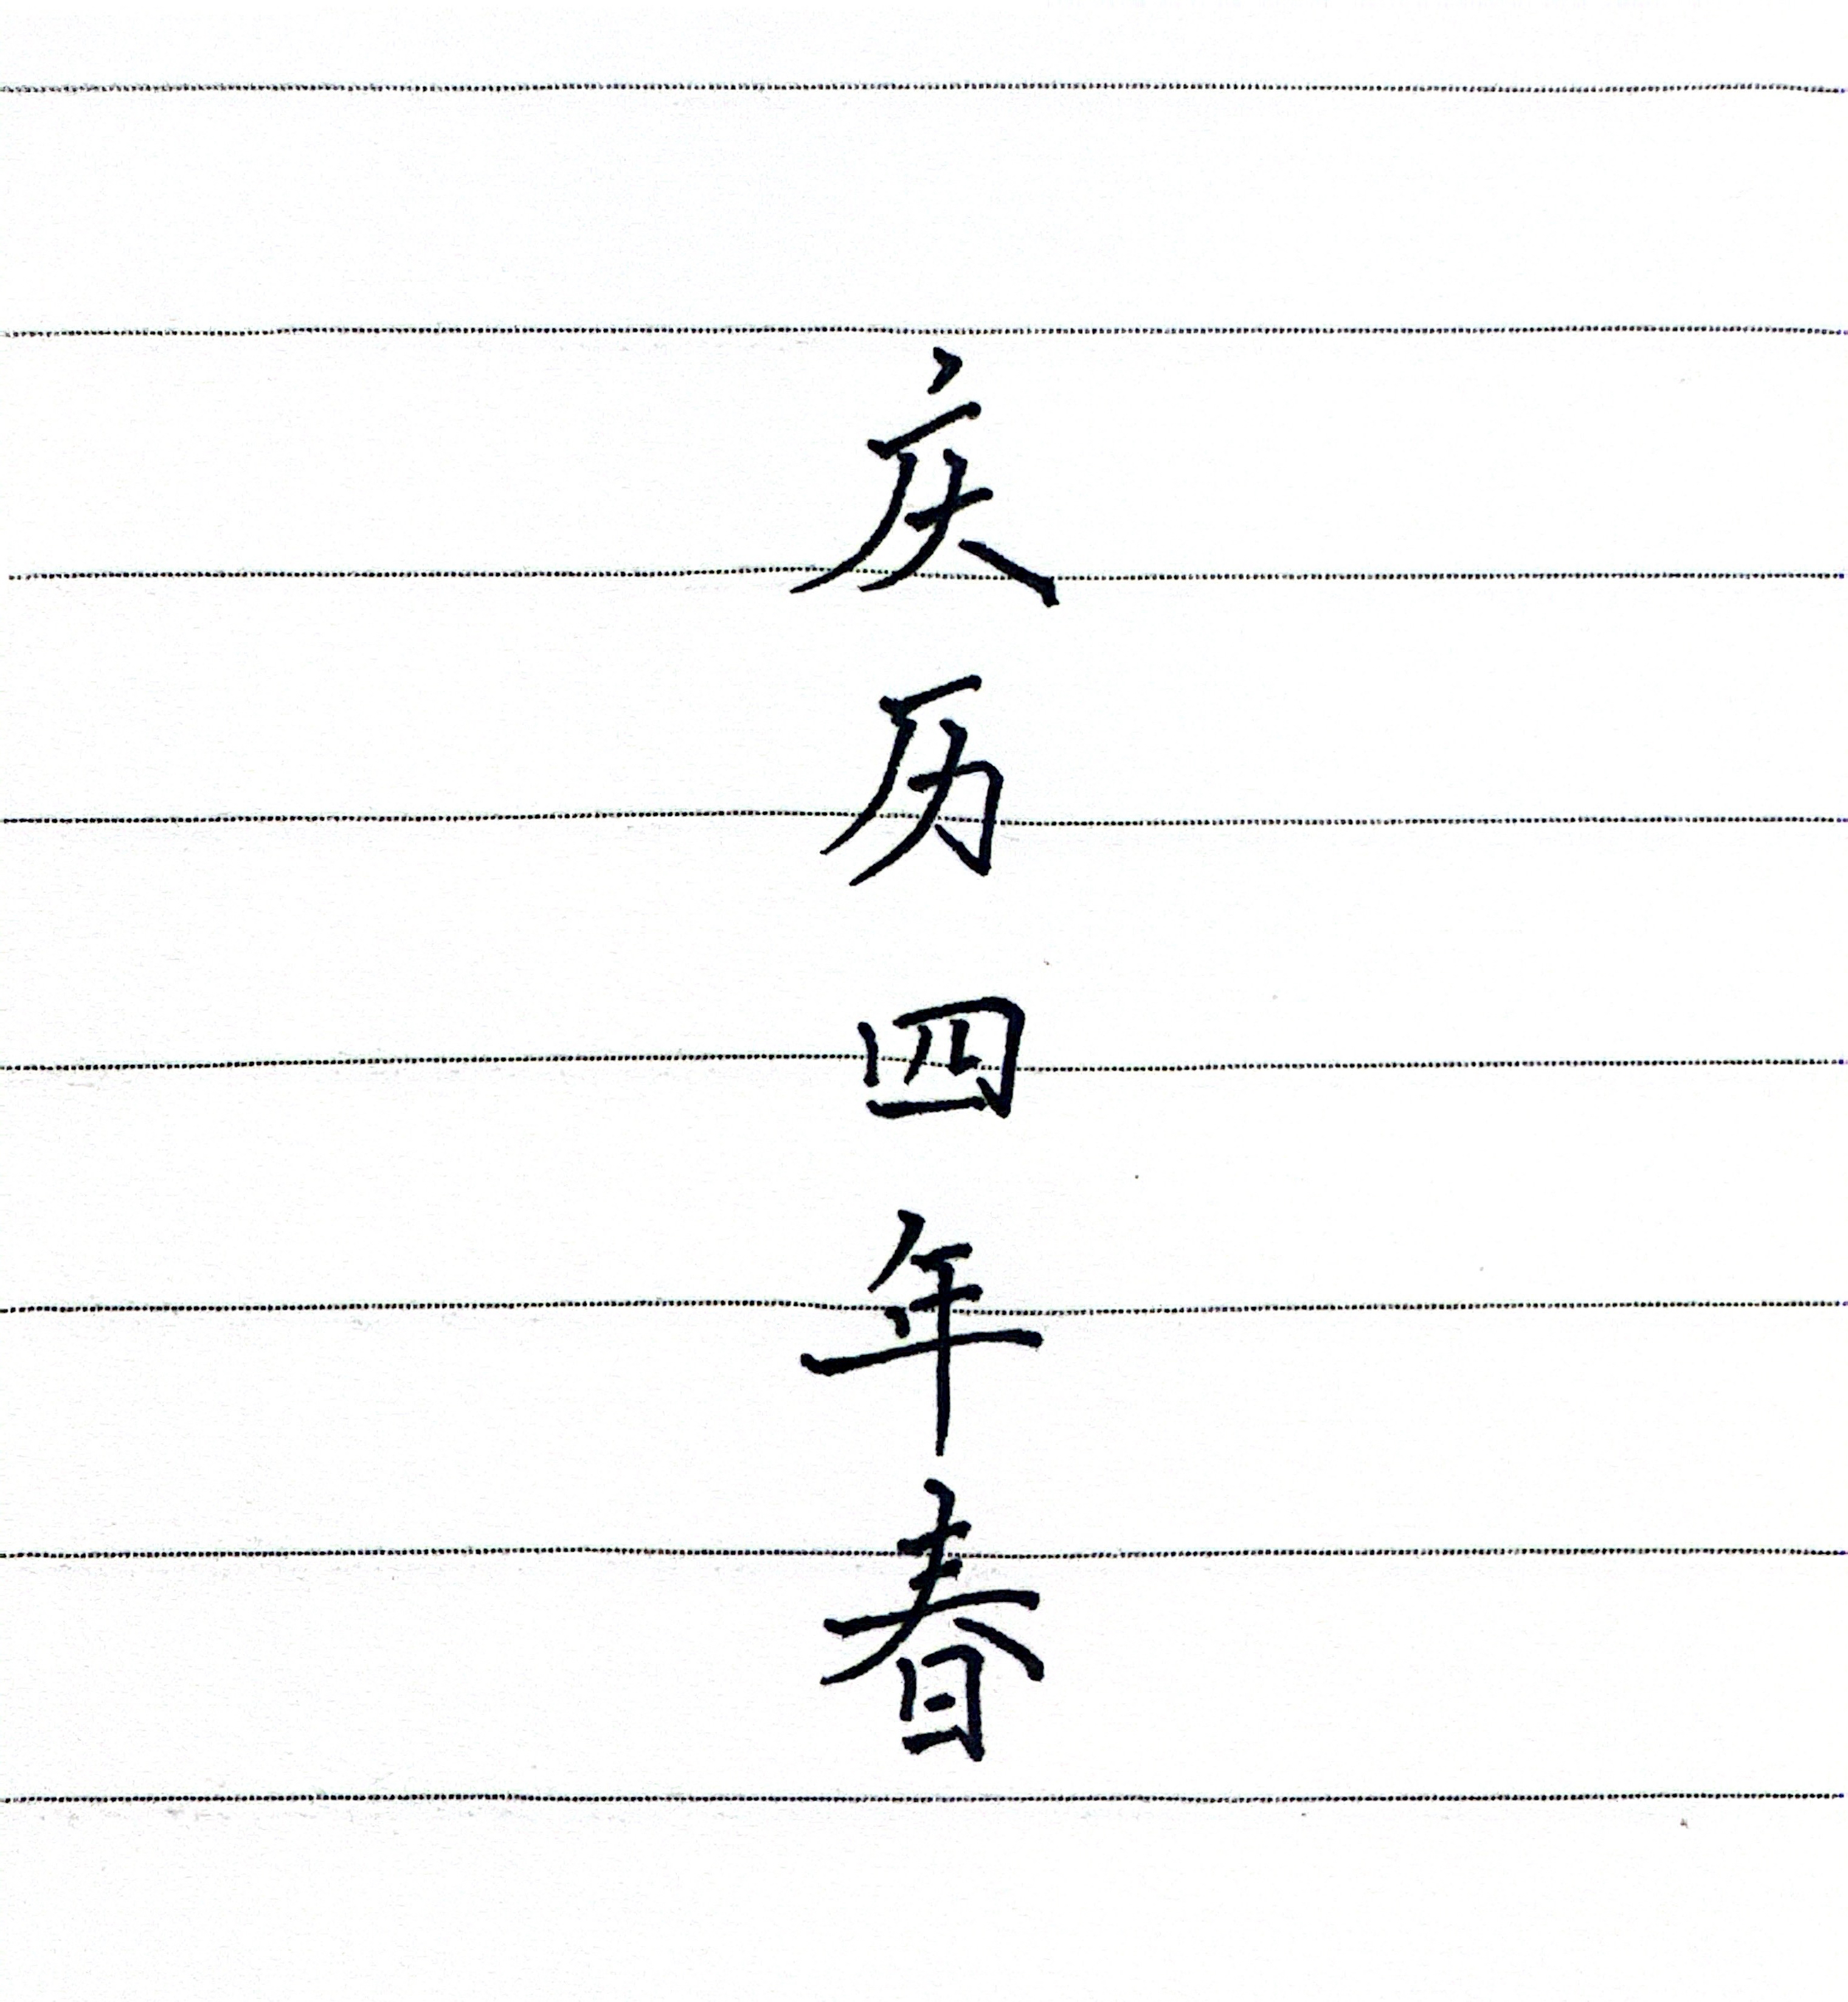 庆历四年春